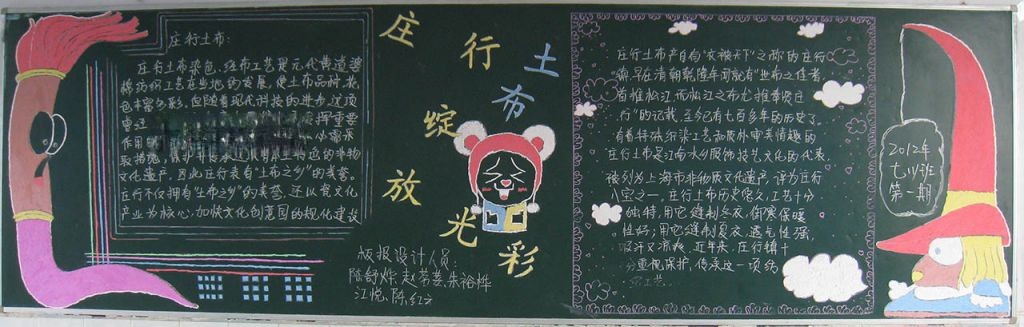 庄行土布:
庄行土布染色、织布工艺是元代黄道婆
棉纺织工艺在当地的发展,使土布品种、花
色丰富多彩,但随着现代科技的进步,这项
挥重要
作用
取措施,
文化遗产,因此庄行素有"土布之乡"的美誉。
庄行不仅拥有"土布之乡"的美誉,还以农文化
产业为核心,加快文化创意园的规化建设
庄行土布
绽放光彩
板报设计人员:
陈舒烨、赵芳芸、朱裕烨
江悦、陈红云
庄行土布产自有"衣被天下"之称的庄行
镇,早在清朝乾隆年间就有"业布之佳者,
首推松江,而松江之布尤推崇贤庄
行"的记载,至今已有七百多年的历史了,
有着特殊的染工艺和质朴审美情趣的
庄行土布是江南水乡服饰技艺文化的代表,
被列为上海市非物质文化遗产,评为庄行
八宝之一。庄行土布历史悠久,工艺十分
独特,用它缝制冬衣,御寒保暖
性好;用它缝制夏衣,透气性强,
吸汗又凉爽,近年来,庄行镇十
分重视保护、传承这一项纺
织工艺。
2012年
七(1)班
第一期